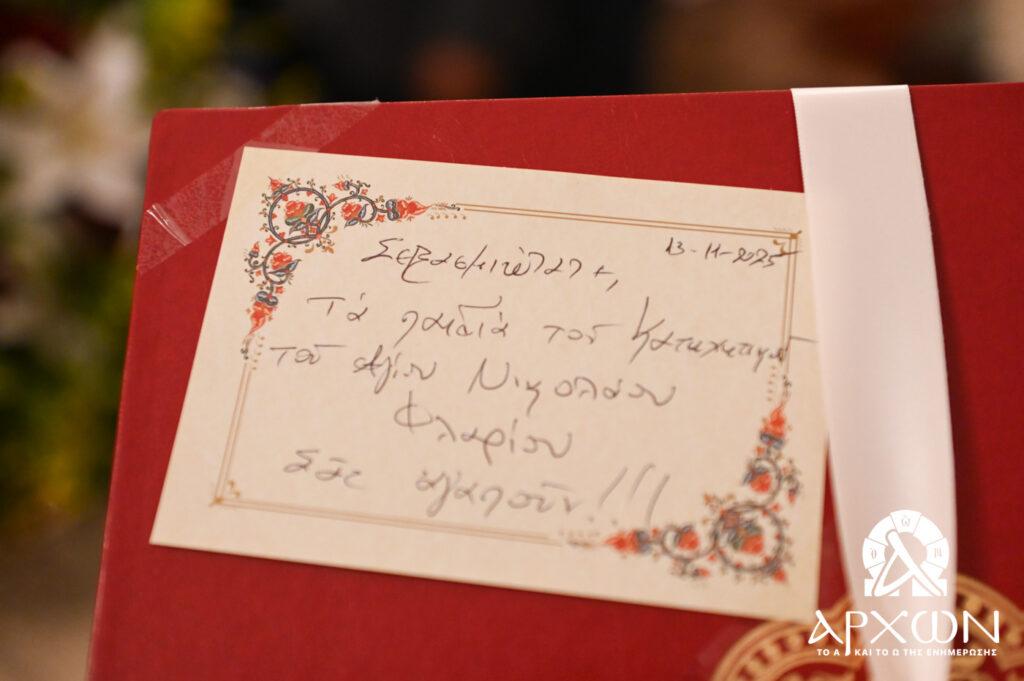 13-11-2025
Σεβασμιώτατε,
Τά παιδιά τοῦ Κατηχητικοῦ
τοῦ Ἁγίου Νικολάου
Φλαρίου
Σᾶς ἀγαποῦν!!!
ΑΡΧΩΝ
ΤΟ Α ΚΑΙ ΤΟ Ω ΤΗΣ ΕΝΗΜΕΡΩΣΗΣ